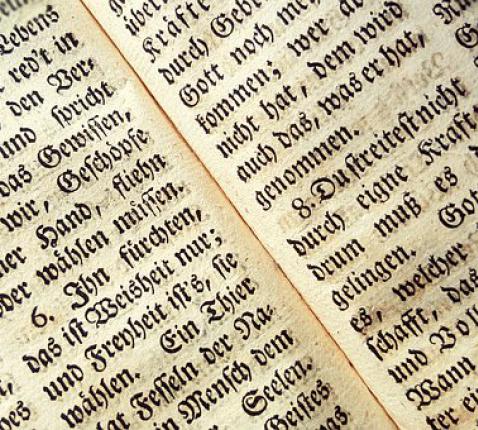 Lebens
red't in
den Ver-
und spricht
das Gewissen,
wir, Geschöpfe
Hand, fliehn
wählen müssen.
6. Ihn fürchten,
das ist Weisheit nur;
und Freyheit ist's, sie
wählen. Ein Thier
Fesseln der Na-
Mensch dem
Seelen.
Geistes
Kräfte
durch
Gott noch
kommen; wer
nicht hat, dem wird
auch das, was er hat,
genommen.
8. Du streitest nicht
durch eigne Kraft,
drum muß es
gelingen.
es, welcher
schafft, das
und
Wann